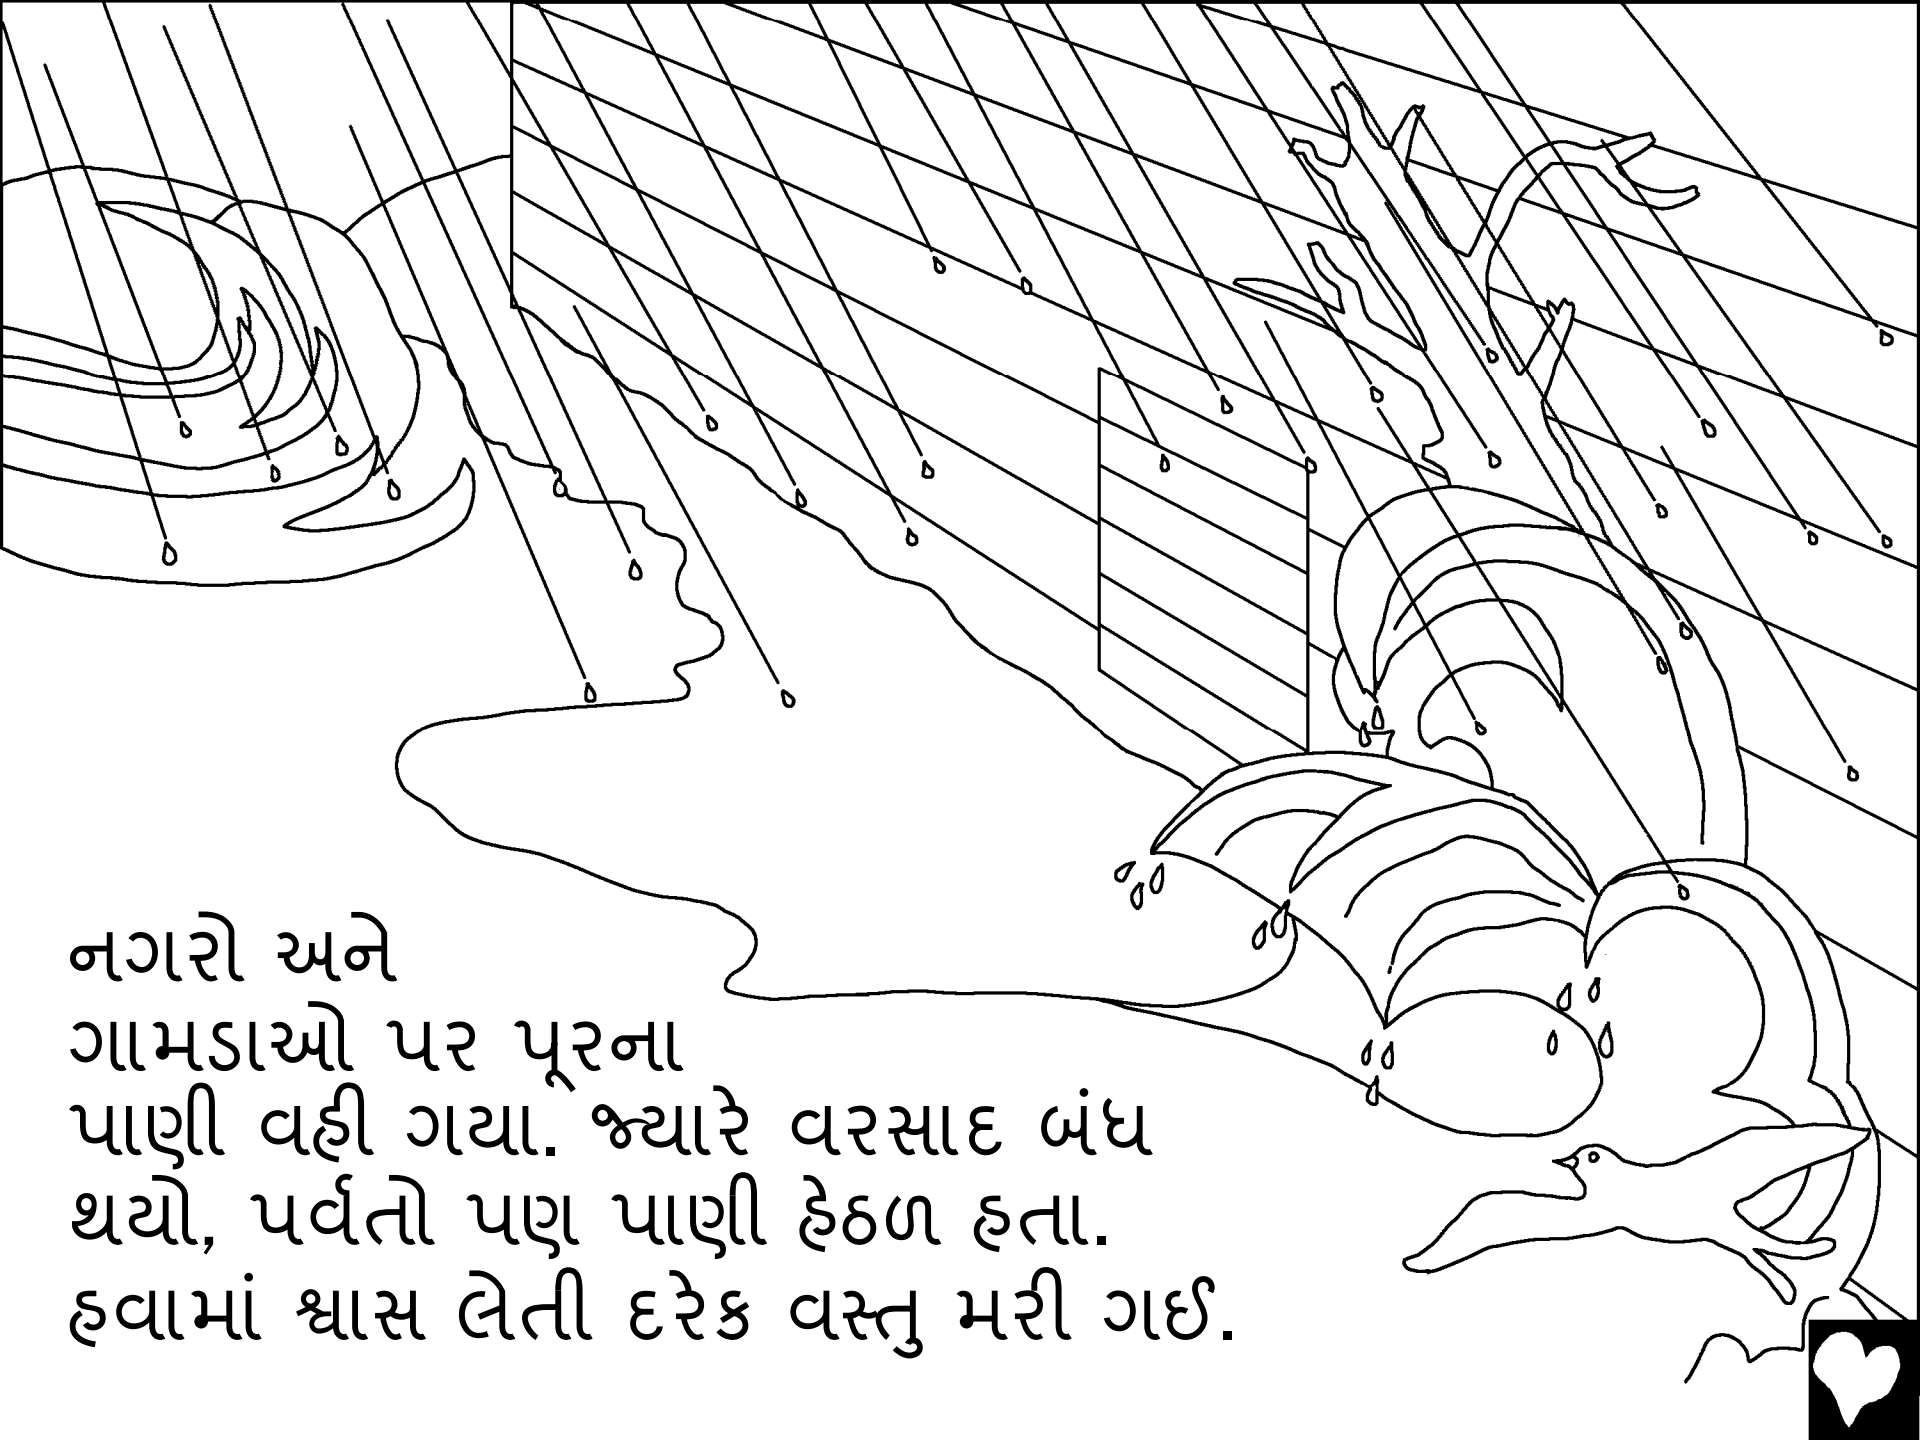 નગરો અને
ગામડાઓ પર પૂરના
પાણી વહી ગયા. જ્યારે વરસાદ બંધ
થયો, પર્વતો પણ પાણી હેઠળ હતા.
હવામાં શ્વાસ લેતી દરેક વસ્તુ મરી ગઈ.